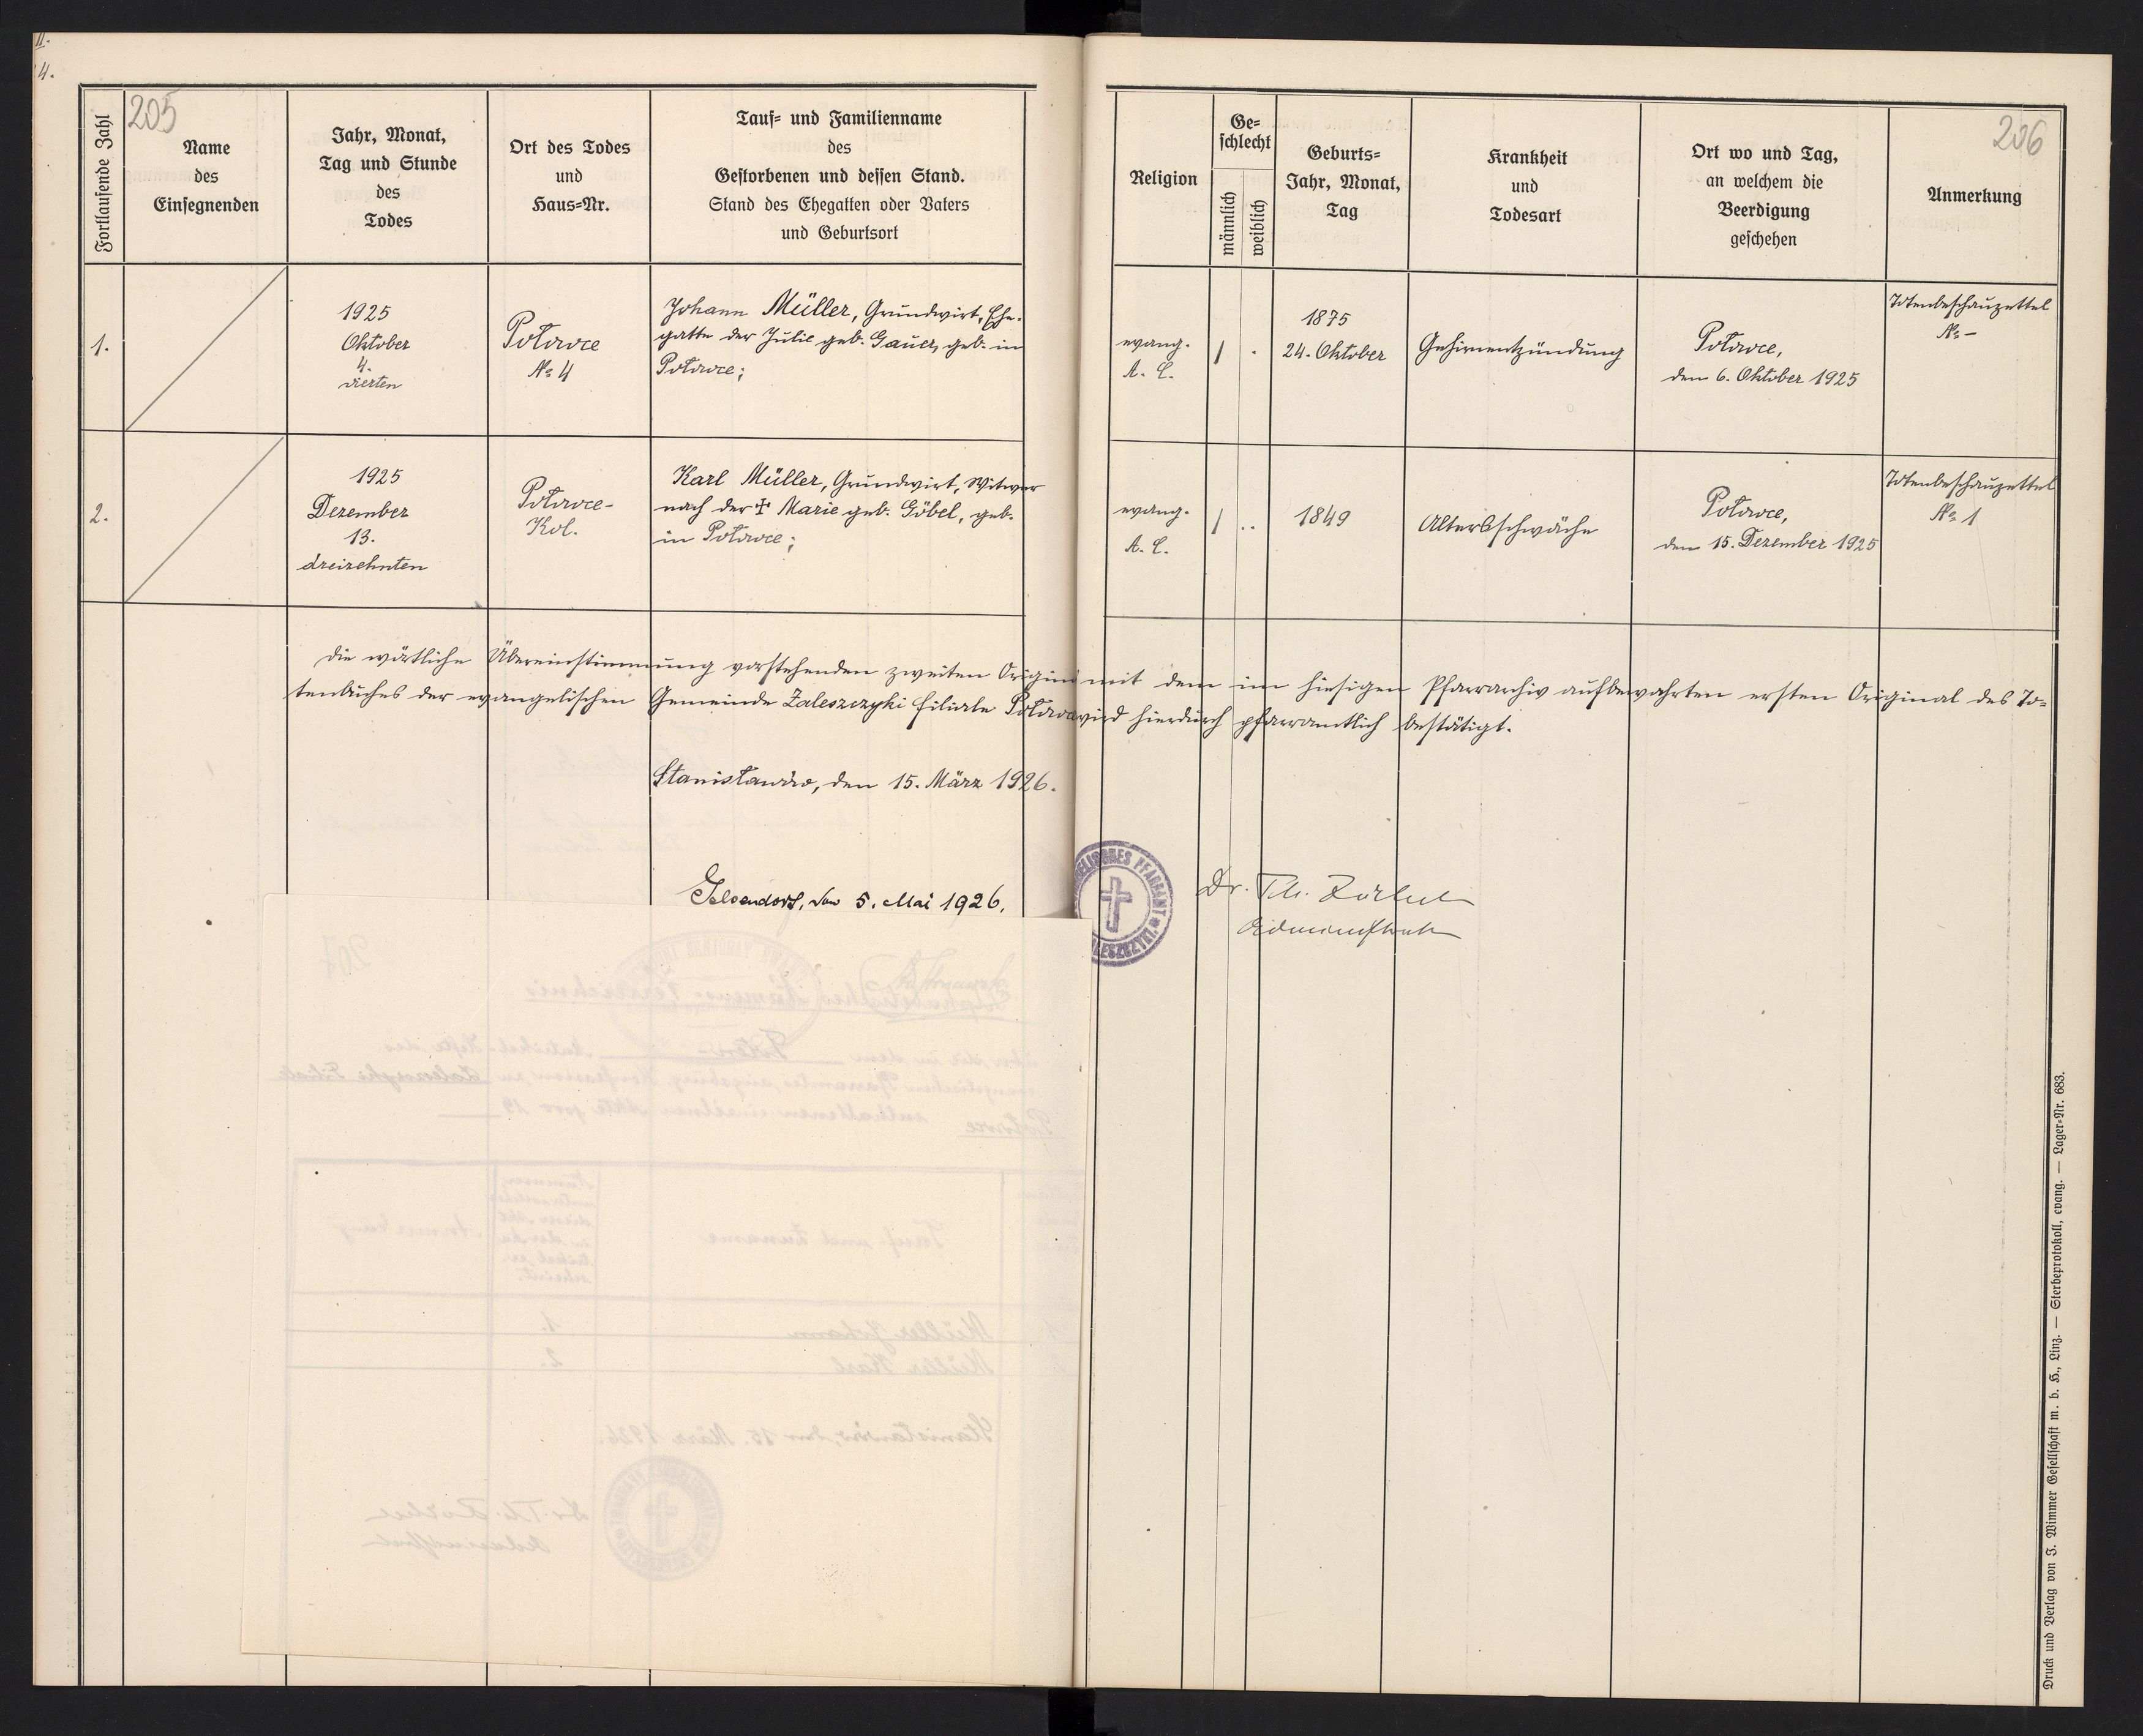 II.
4.
205
Fortlaufende Zahl
Name
des
Einsegnenden
Jahr, Monat,
Tag und Stunde
des
Todes
Ort des Todes
und
Haus=Nr.
Tauf= und Familienname
des
Gestorbenen und dessen Stand.
Stand des Ehegatten oder Vaters
und Geburtsort
Religion
Ge=
schlecht
männlich
weiblich
Geburts=
Jahr, Monat,
Tag
Krankheit
und
Todesart
Ort wo und Tag,
an welchem die
Beerdigung
geschehen
206
Anmerkung
1.
1925
Oktober
4.
vierten
Potowce
№ 4
Johann Müller, Grundwirt, Ehe-
gatte der Julie geb. Gauer, geb. in
Potowce;
evang.
A. C.
1
1875
24. Oktober
Gehirnentzündung
Potowce,
den 6. Oktober 1925
Totenbeschauzettel
№ –
2.
1925
Dezember
13.
dreizehnten
Potowce-
Kol.
Karl Müller, Grundwirt, Witwer
nach der † Marie geb. Göbel, geb.
in Potowce;
evang.
A. C.
1
1849
Altersschwäche
Potowce,
den 15. Dezember 1925
Totenbeschauzettel
№ 1
Die wörtliche Übereinstimmung vorstehenden zweiten Origin mit dem im hiesigen Pfarrarchiv aufbewahrten ersten Original des To=
tenbuches der evangelischen Gemeinde Zaleszczyki filiale wird hierdurch pfarramtlich bestätigt.
Stanisławów, den 15. März 1926.
den 5. Mai 1926.
PFARRAMT
Dr. Th. Zöckler
Administrator
Druck und Verlag von J. Wimmer Gesellschaft m. b. H., Linz. — Sterbeprotokoll, evang. — Lager=Nr. 683.